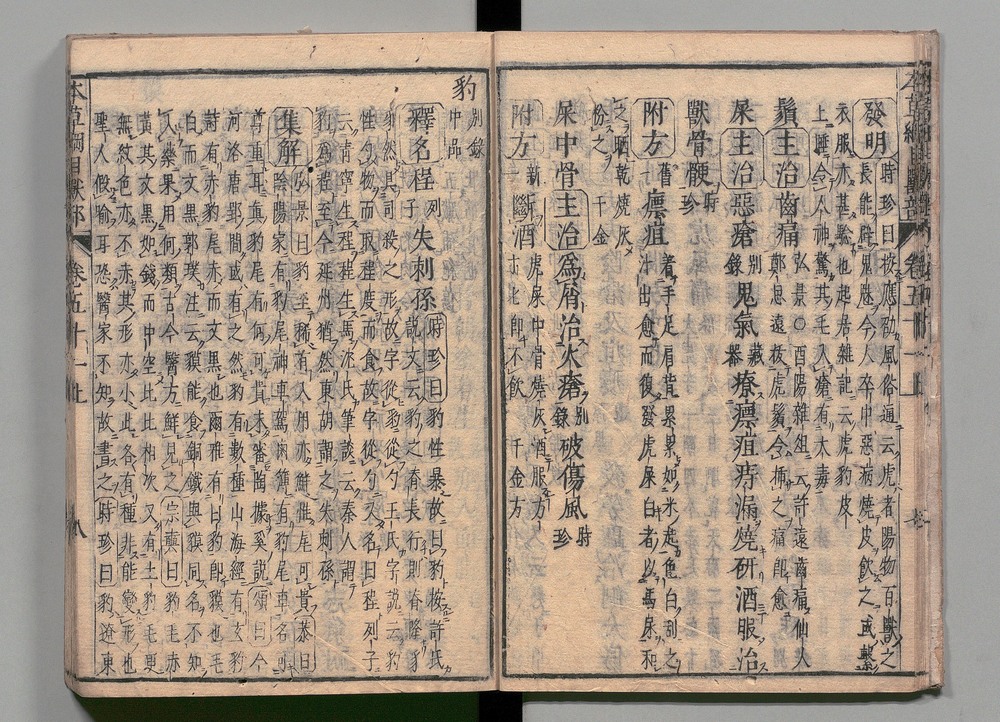 發明時珍曰按應劭風俗通云虎者陽物百獸之
長能辟鬼魅今人卒中惡病燒皮飲之或繫
衣服亦甚驗也起居雜記云虎豹皮
上睡令人神驚其毛入瘡有大毒
鬚主治齒痛弘景○酉陽雜俎云許遠齒痛仙人
鄭思遠拔虎鬚令插之痛即愈
屎主治惡瘡別錄鬼氣藏器療瘭疽痔漏燒研酒服治
獸骨哽時珍
附方舊一瘭疽著手足肩背累累如米起色白刮之
汁出愈而復發虎屎白者以馬尿和
之晒乾燒灰
份之千金
屎中骨主治為屑治火瘡別錄破傷風時珍
附方新一斷酒虎屎中骨燒灰酒服方
寸匕即不飲千金方
豹別錄
中品
釋名程列子失刺孫時珍曰豹性暴故曰豹按許氏
說文云豹之脊長行則脊隆豸
豸然具司殺之形故字從豸從勺王氏字說云豹
性勺物而取程度而食故字從勺又名曰程列子
云青寧生程程生馬沈氏筆談云秦人謂
豹為程至今延州猶然東胡謂之失刺孫
集解弘景曰豹至稀有入用亦鮮惟尾可貴恭曰
陰陽家有豹尾神車駕鹵簿有豹尾車名可
尊重耳真豹尾有何可貴未審陶據奚說頌曰今
河洛唐郢間或有之然豹有數種山海經有玄豹
詩有赤豹尾赤而文黑也爾雅有白豹即貘也
白而文黑郭璞注云貘能食銅鐵與貘同名不知
入藥果用何類古今醫方鮮見之宗奭曰豹毛赤
黃其文黑如錢而中空比比相次又有土豹毛更
無紋色亦不赤其形亦小此各有種非能變形也
聖人假喻耳恐醫家不知故書之時珍曰豹遼東
本草綱目獸部
卷五十一上
八